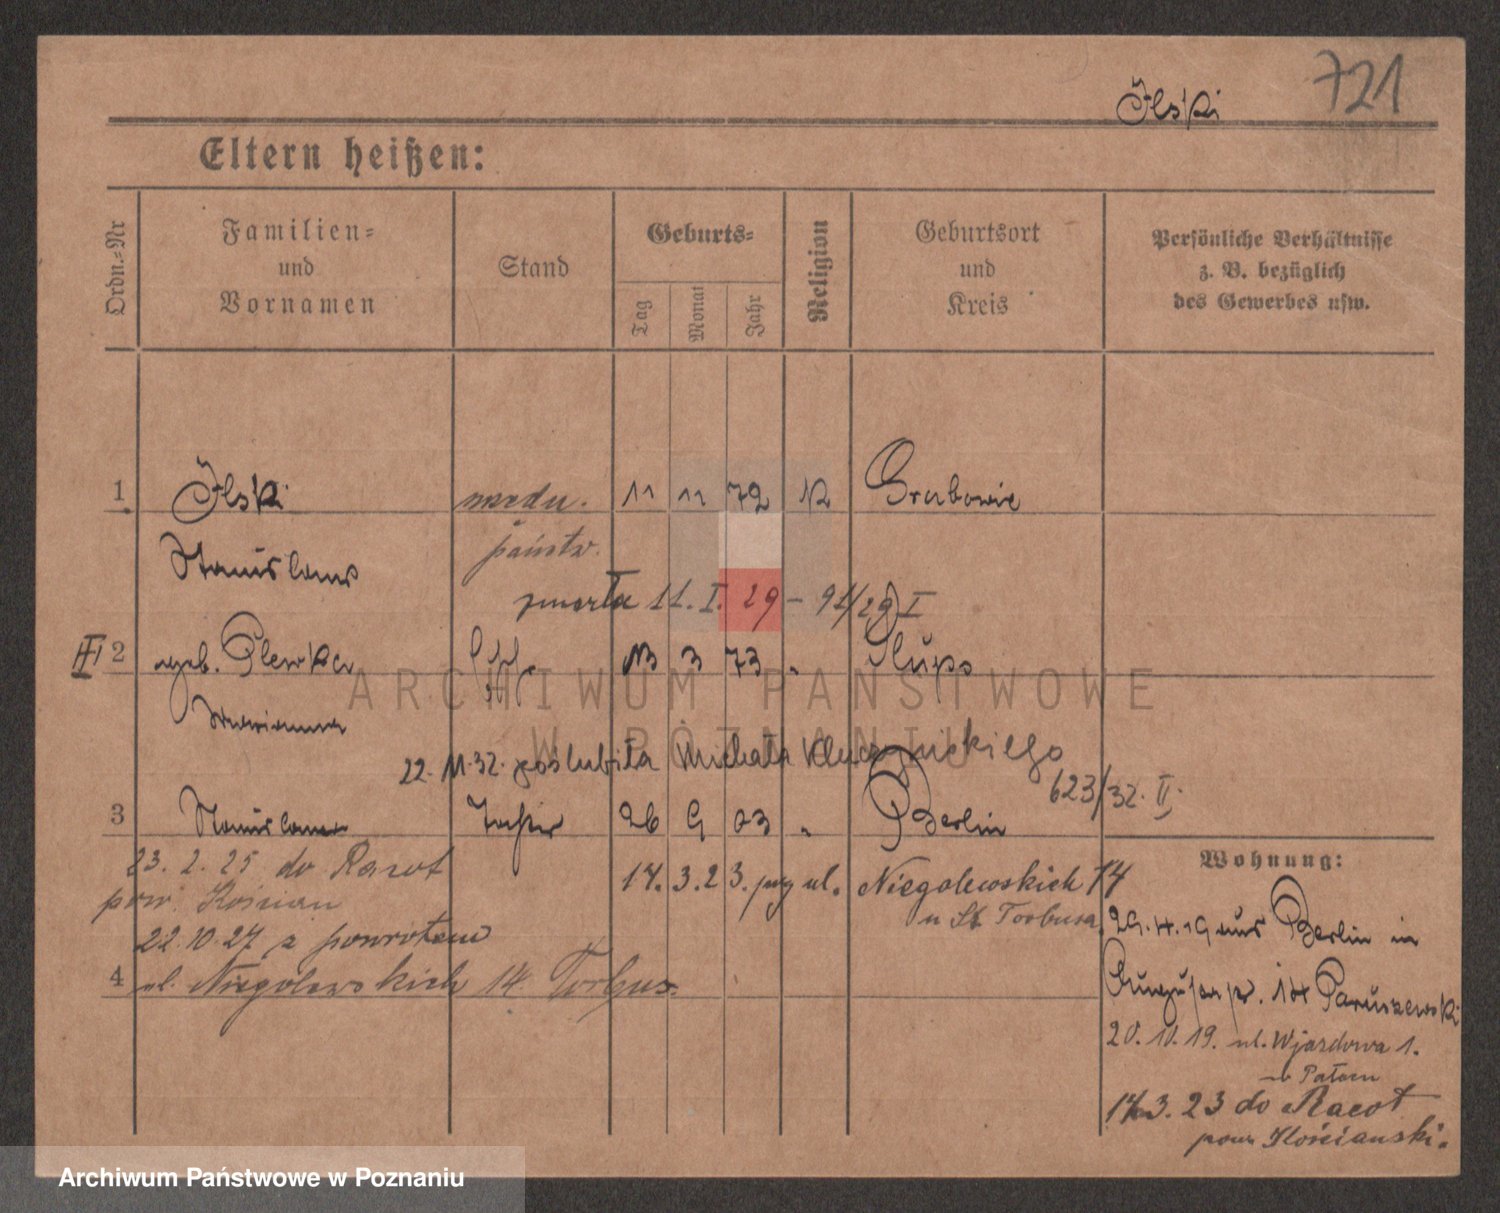 721
Ilski
Eltern heißen:
Ordn.-Nr
Familien-
und
Vornamen
Stand
Geburts-
Tag
Monat
Jahr
Religion
Geburtsort
und
Kreis
Persönliche Verhältnisse
z. B. bezüglich
des Gewerbes usw.
1 Ilski 11 11 72 K Grabowie
państw.
Stanislaus
zmarła 11. I. 29 – 91/29 I
2 geb. Plewka 13 3 73 " Slupo
Marianna
22. 11. 32. poślubiła Michała
623/32. II.
3 Stanislaus 26 9 03 " Berlin
Wohnung:
23. 2. 25 do Racot
pow. Kościan
14. 3. 23. ul. Niegolewskich 14
u St. Torbusa
22. 10. 27 z powrotem
4 ul. Niegolewskich 14. Torbus.
29. 4. 19 aus Berlin in
14 Paruszewski
20. 10. 19. ul. Wjazdowa 1.
14. 3. 23 do Racot
pow. Kościański.
ARCHIWUM PAŃSTWOWE
W POZNANIU
Archiwum Państwowe w Poznaniu